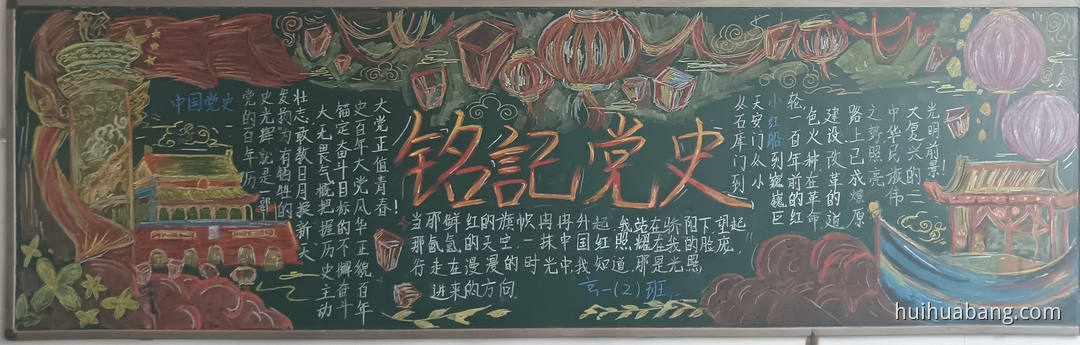 中国党史
党的百年历
史光辉就是一部
发扬为有牺牲的
壮志敢教日月换新天
大无畏气概把握历史主动
锚定奋斗目标的不懈奋斗
史百年大党风华正貌百年
大党正值青春!
铭記党史
当那鲜红的旗帜冉冉升起,我站在骄阳下望起
那氤氲的天空,一抹中国红照耀在我的脸庞,
行走在漫漫的时光中,我知道,那是光照
进来的方向
高一(2)班
从石库门到
天安门从小
小红船到巍巍巨
轮一百年前的红
色火种在革命
建设改革的道
路上已成燎原
之势照亮
中华民族伟
大复兴的
光明前景!
huihuabang.com